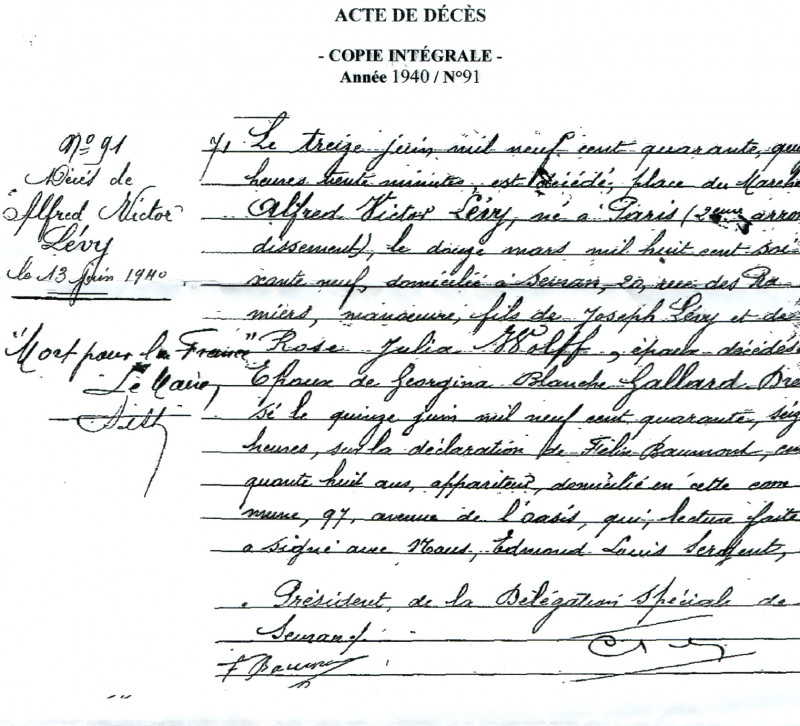 ACTE DE DÉCÈS
- COPIE INTÉGRALE -
Année 1940 / N°91
N° 91
Décès de
Alfred Victor
Lévy
le 13 juin 1940
"Mort pour la France"
Le Maire,
Le treize juin mil neuf cent quarante,
heures trente minutes, est décédé, place du Marché
Alfred Victor Lévy, né à Paris (2eme arron
dissement), le douze mars mil huit cent soi-
xante neuf, domicilié à Sevran, 20, rue des Ra
miers, manoeuvre, fils de Joseph Lévy et de
Rose Julia Wolff, époux décédés
Epoux de Georgina Blanche Gallard Dres
sé le quinze juin mil neuf cent quarante, seiz
heures, sur la déclaration de Félix Baumont, cin
quante huit ans, appariteur, domicilié en cette com
mune, 97, avenue de l'oasis, qui, lecture faite
a signé avec Nous, Edmond Louis Sergent,
Président de la Délégation Spéciale de
Sevran
F Baumont